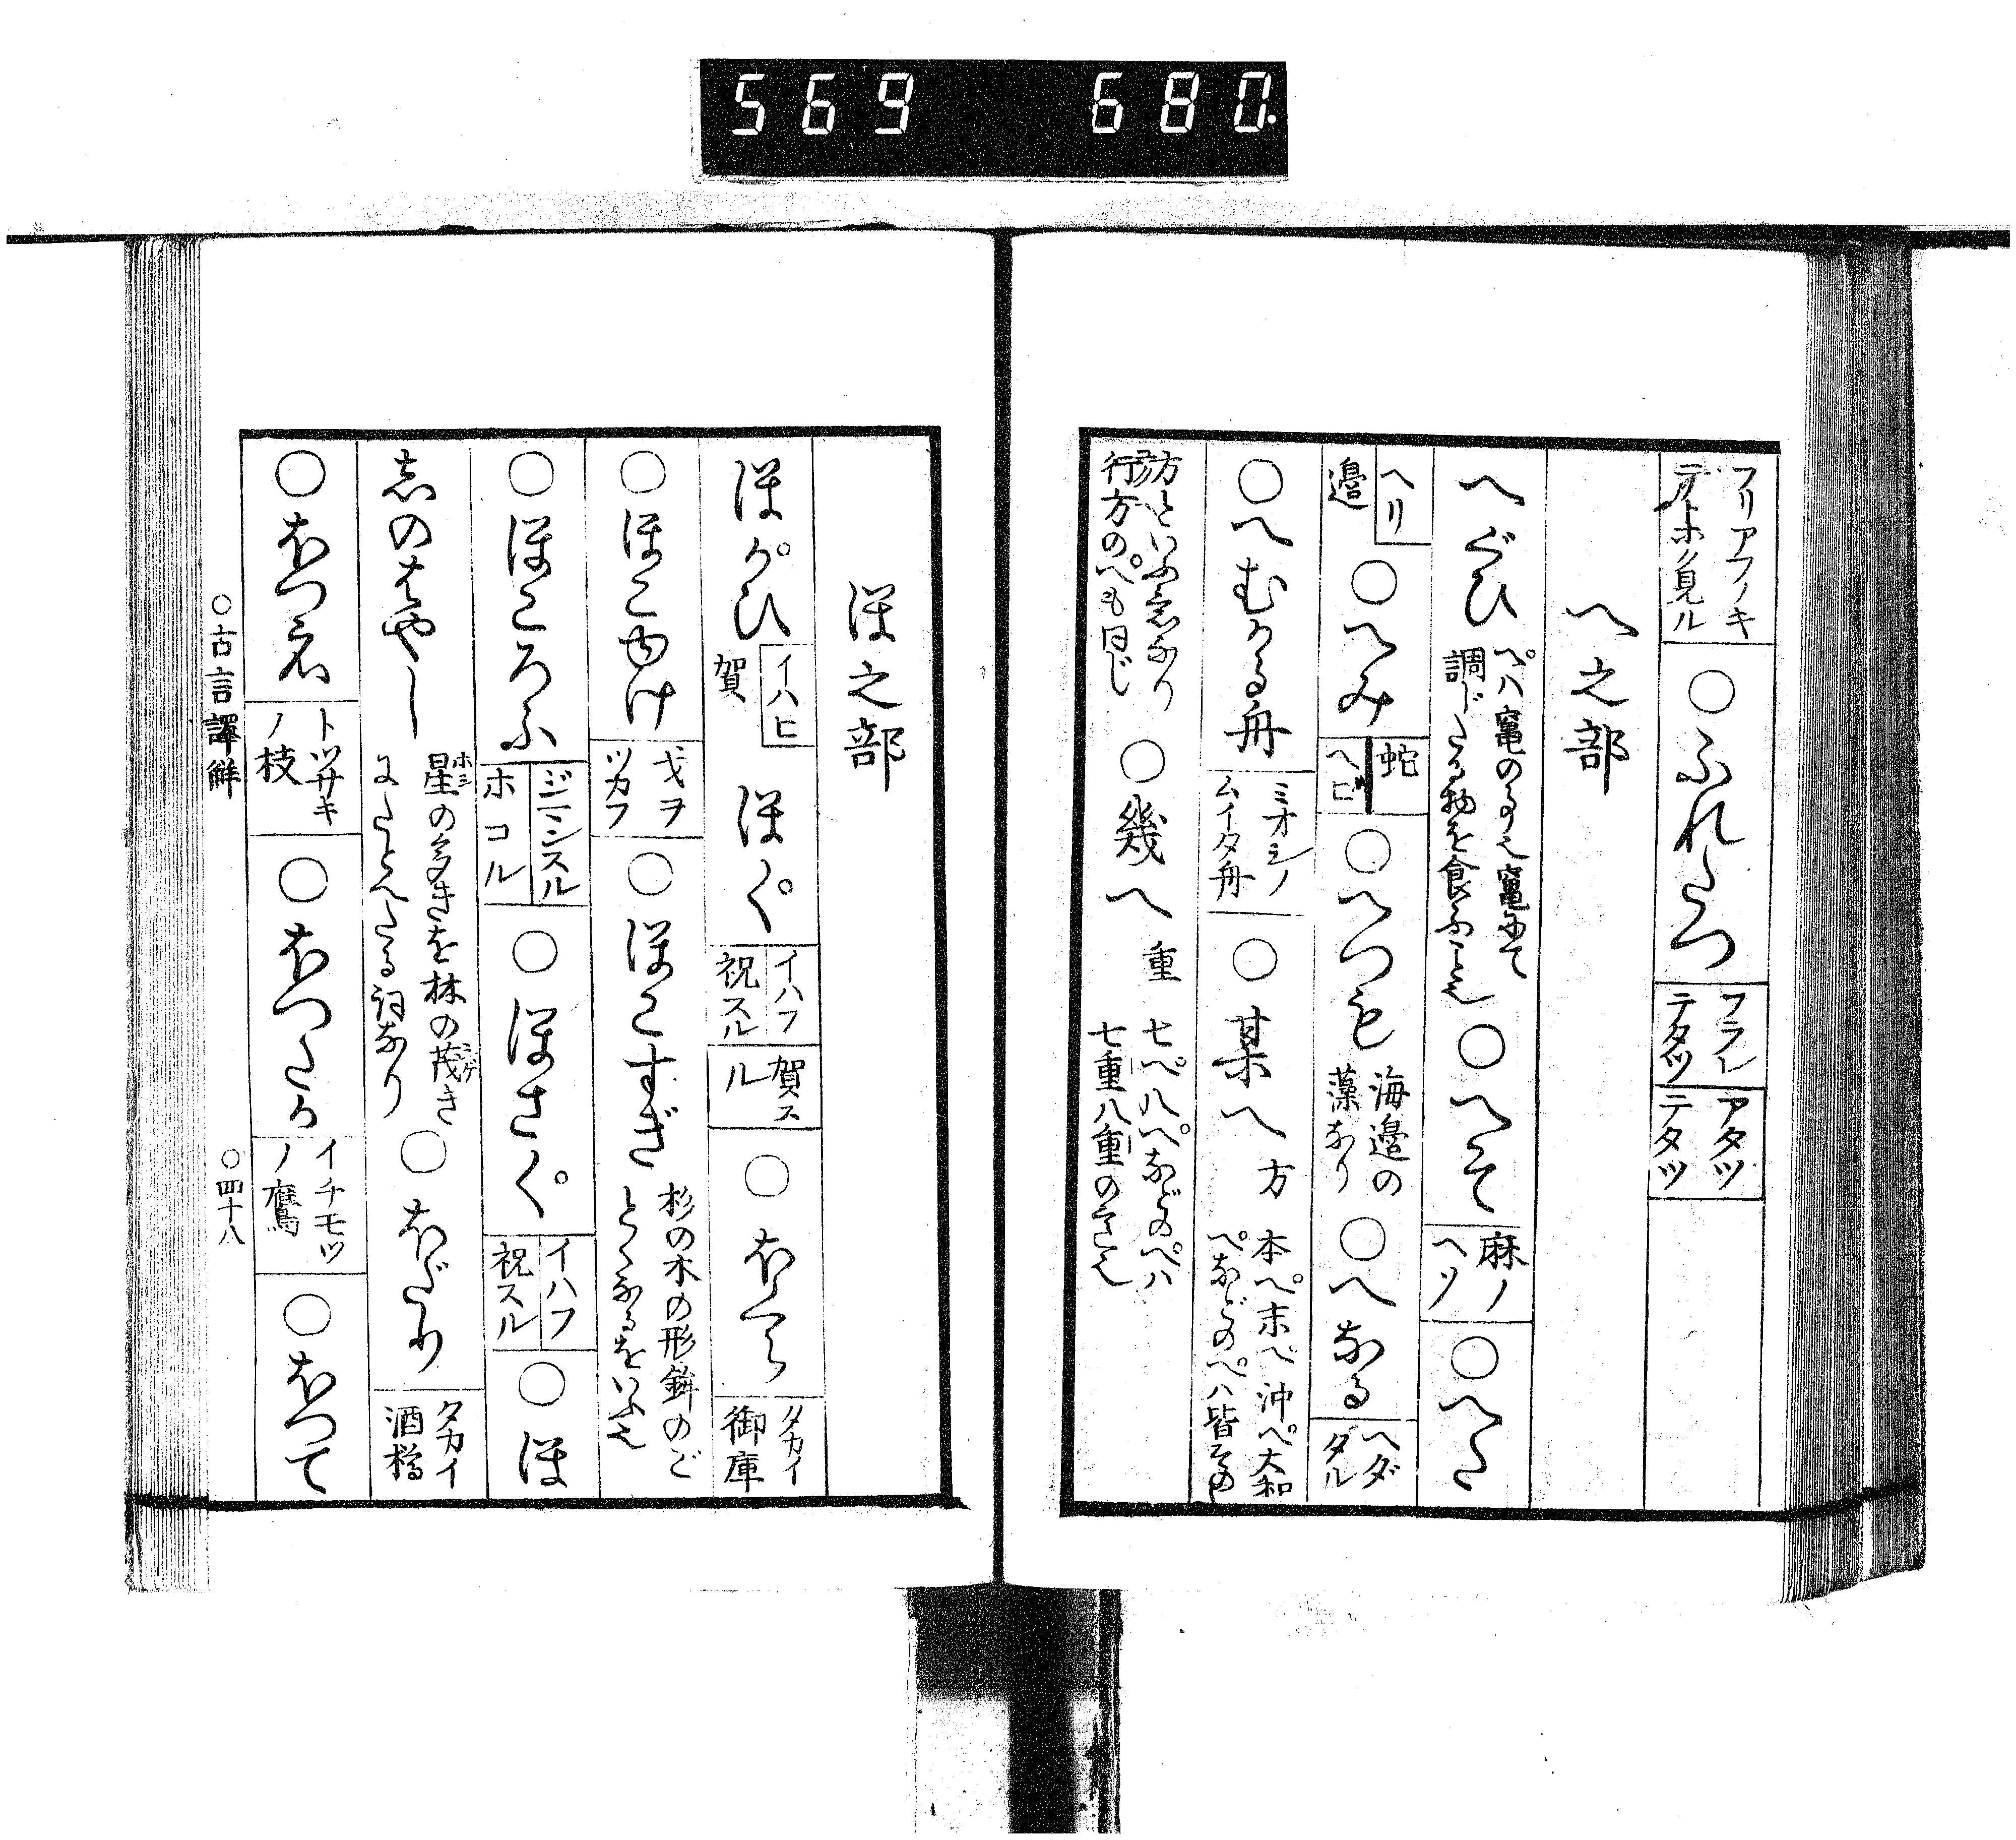 569 680.
フリアフノキ
テトホク見ル
○ふれたつ
フラレ
テタツ
アタツ
テタツ
へ之部
へぐひ
調じたる物を食ふこと也
○へそ
麻ノ
ヘソ
○へた
ヘリ
邉
○へみ
蛇
ヘビ
○へつも
海邉の
藻なり
○へなる
ヘダ
タル
○へむかる舟
ミオシノ
ムイタ舟
○某へ
方
本ペ末ペ沖ペ大和
ペなどのペハ皆その
方といふ意なり
行方のペも同じ
○幾へ
重
七ペ八ペなどのペハ
七重八重のこと也
ほ之部
ほがひ
イハヒ
賀
ほぐ
イハフ
祝スル
賀ス
ル
○ほくら
タカイ
御庫
○ほこゆけ
戈ヲ
ツカフ
○ほこすぎ
杉の木の形鉾のご
とくなるをいふ也
○ほころふ
ジマンスル
ホコル
○ほさく
イハフ
祝スル
○ほ
しのはやし
星の多きを林の茂き
にたとへたる詞なり
○ほだり
タカイ
酒樽
○ほつえ
トツサキ
ノ枝
○ほつたか
イチモツ
ノ鷹
○ほつて
○古言譯解
○四十八